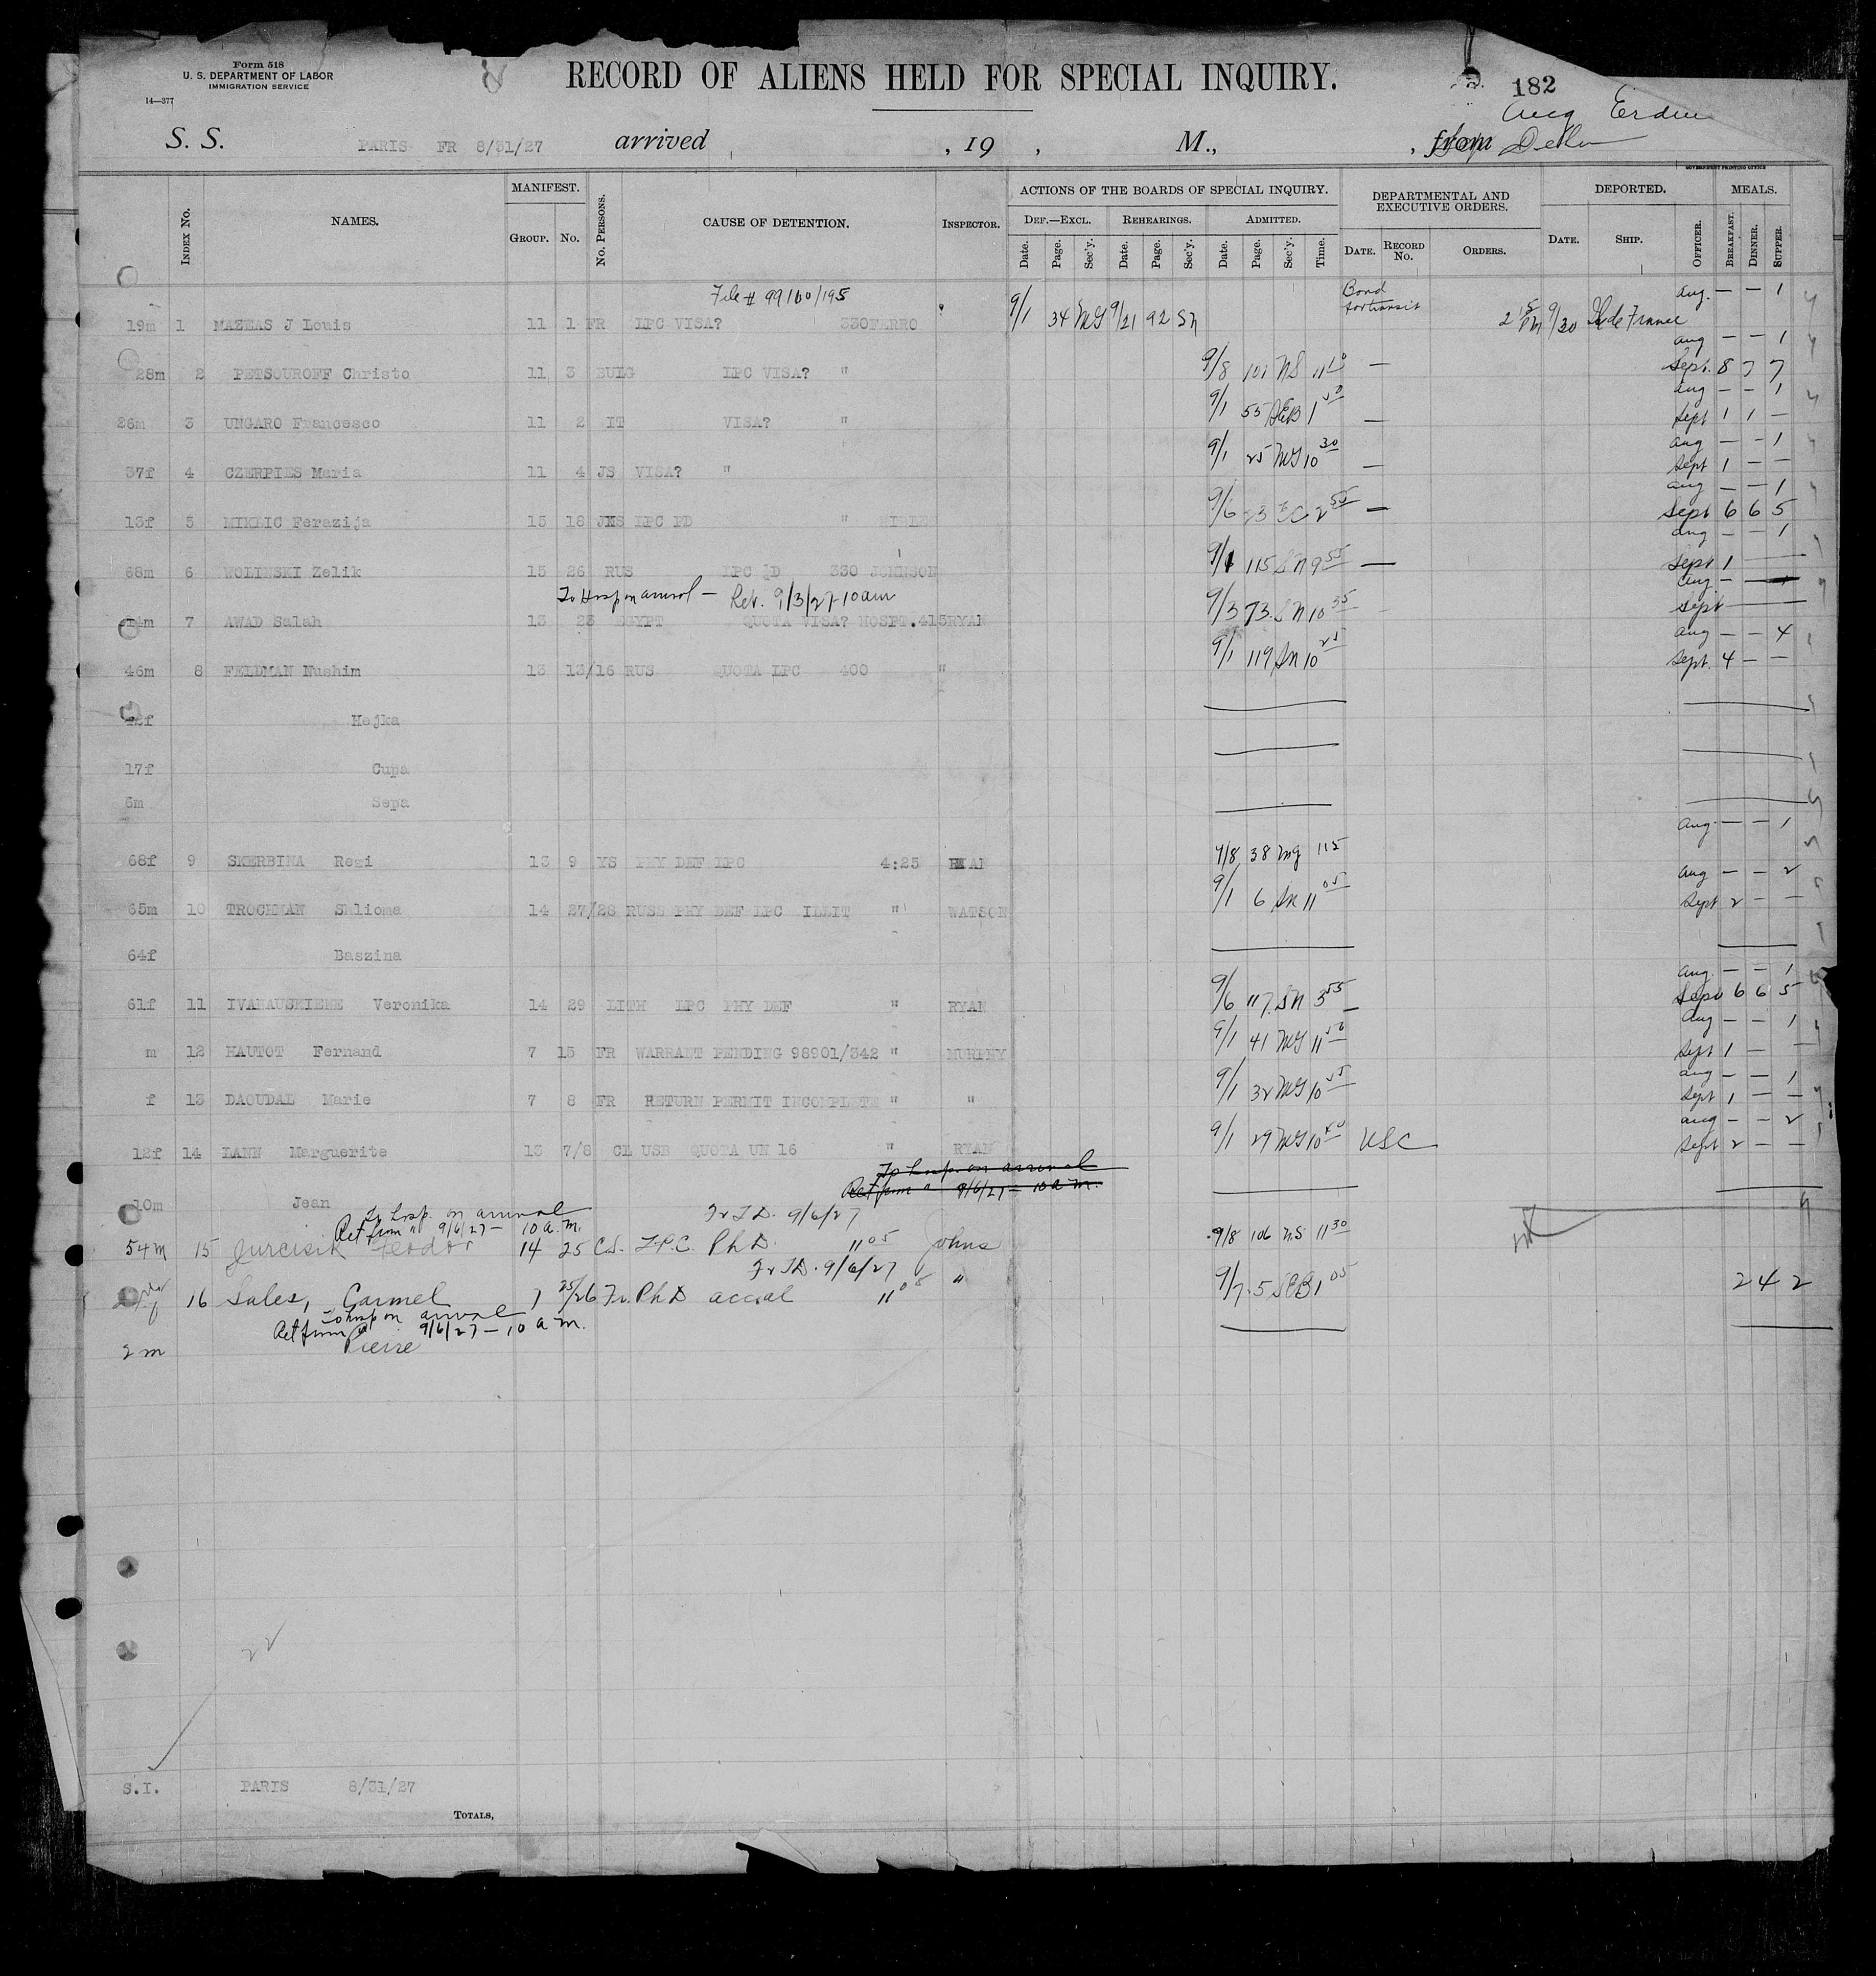 Form 518
U. S. DEPARTMENT OF LABOR
IMMIGRATION SERVICE
14—377
RECORD OF ALIENS HELD FOR SPECIAL INQUIRY.
182
S. S. PARIS FR 8/31/27 arrived , 19 , M., , from
GOVERNMENT PRINTING OFFICE
Index No. NAMES. MANIFEST. Group. No. No. Persons. CAUSE OF DETENTION. Inspector. ACTIONS OF THE BOARDS OF SPECIAL INQUIRY. Def.—Excl. Rehearings. Admitted. Date. Page. Sec'y. Date. Page. Sec'y. Date. Page. Sec'y. Time. DEPARTMENTAL AND EXECUTIVE ORDERS. Date. Record No. Orders. DEPORTED. Date. Ship. Officer. MEALS. Breakfast. Dinner. Supper.
File # 99160/195 Bond for transit Aug. — — 1
19m 1 MAZEAS J Louis 11 1 FR LPC VISA? 330 FERRO 9/1 34 MG 9/21 92 SN 2 15 PM 9/30 Ile de France
Aug — — 1
28m 2 PETSOUROFF Christo 11 3 BULG LPC VISA? " 9/8 101 NS 11 — Sept. 8 7 7
Aug — — 1
26m 3 UNGARO Francesco 11 2 IT VISA? " 9/1 55 SEB 1 — Sept 1 1 —
Aug — — 1
37f 4 CZERPIES Maria 11 4 JS VISA? " 9/1 25 MG 10 30 — Sept 1 — —
Aug — — 1
13f 5 MIKLIC Ferazija 15 18 LPC PD " 9/6 EC 2 55 — Sept 6 6 5
Aug — — 1
68m 6 WOLINSKI Zelik 15 26 RUS LPC PD 330 JOHNSON 9/1 115 SN 9 55 — Sept 1
To Hosp on arrival — Ret. 9/3/27 10 am Aug —
7 AWAD Salah 13 23 EGYPT QUOTA VISA? HOSPT. 415 RYAN 9/3 73 SN 10 35 Sept
Aug — — 4
46m 8 FELDMAN Nushim 13 13/16 RUS QUOTA LPC 400 " 9/1 119 SN 10 25 Sept. 4 — —
Hejka
17f Cupa
6m Sepa
Aug — — 1
68f 9 SKERBINA Regi 13 9 YS PHY DEF LPC 4:25 RYAN 9/8 38 MG 1 15
Aug — — 2
65m 10 TROCHMAN Shlioma 14 27/28 RUSS PHY DEF LPC ILLIT " WATSON 9/1 6 SN 11 05 Sept 2 — —
64f Baszina
Aug. — — 1
61f 11 IVANAUSKIENE Veronika 14 29 LITH LPC PHY DEF " RYAN 9/6 117 SN 3 55 — Sept 6 6 5
Aug — — 1
m 12 HAUTOT Fernand 7 15 FR WARRANT PENDING 98901/342 " MURPHY 9/1 41 MG 11 50 Sept 1 — —
Aug — — 1
f 13 DAOUDAL Marie 7 8 FR RETURN PERMIT INCOMPLETE " " 9/1 32 MG 10 55 Sept 1 — —
Aug — — 2
12f 14 LANN Marguerite 13 7/8 CL USB QUOTA UN 16 " RYAN 9/1 29 MG 10 40 USC Sept 2 — —
To hosp. on arrival
Ret from " 9/6/27 — 10 a.m.
10m Jean
To hosp. on arrival Fr T.D. 9/6/27
Ret from " 9/6/27 — 10 A.M.
54m 15 Jurcisik Feodor 14 25 C.S. L.P.C. Ph D. 11 05 Johns 9/8 106 N.S 11 30
Fr T.D. 9/6/27
f 16 Sales, Carmel 7 25/26 Fr. Ph D accal 11 05 " 9/7 5 SEB 1 05 2 4 2
To hosp on arrival
Ret from " 9/6/27 — 10 A M.
2m Pierre
22
S.I. PARIS 8/31/27
Totals,